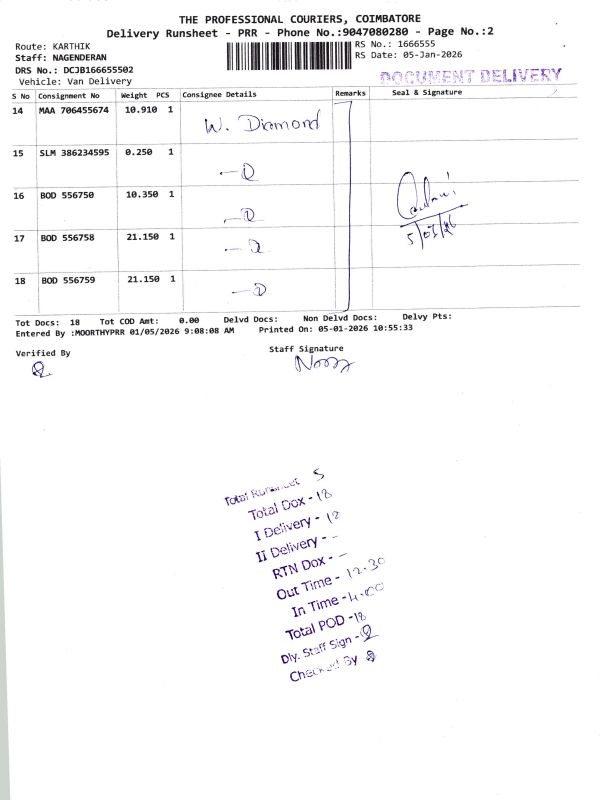 THE PROFESSIONAL COURIERS, COIMBATORE
Delivery Runsheet - PRR - Phone No.:9047080280 - Page No.:2
Route: KARTHIK
RS No.: 1666555
Staff: NAGENDERAN
RS Date: 05-Jan-2026
DRS No.: DCJB166655502
Vehicle: Van Delivery
DOCUMENT DELIVERY
S No Consignment No Weight PCS Consignee Details Remarks Seal & Signature
14 MAA 706455674 10.910 1 W. Diamond
15 SLM 386234595 0.250 1
16 BOD 556750 10.350 1
17 BOD 556758 21.150 1
5/01/26
18 BOD 556759 21.150 1
Tot Docs: 18 Tot COD Amt: 0.00 Delvd Docs: Non Delvd Docs: Delvy Pts:
Entered By :MOORTHYPRR 01/05/2026 9:08:08 AM Printed On: 05-01-2026 10:55:33
Verified By
Staff Signature
Total Runsheet 5
Total Dox - 18
I Delivery - 18
II Delivery - -
RTN Dox - -
Out Time - 12.30
In Time - 4.00
Total POD - 18
Dly. Staff Sign -
Checked By